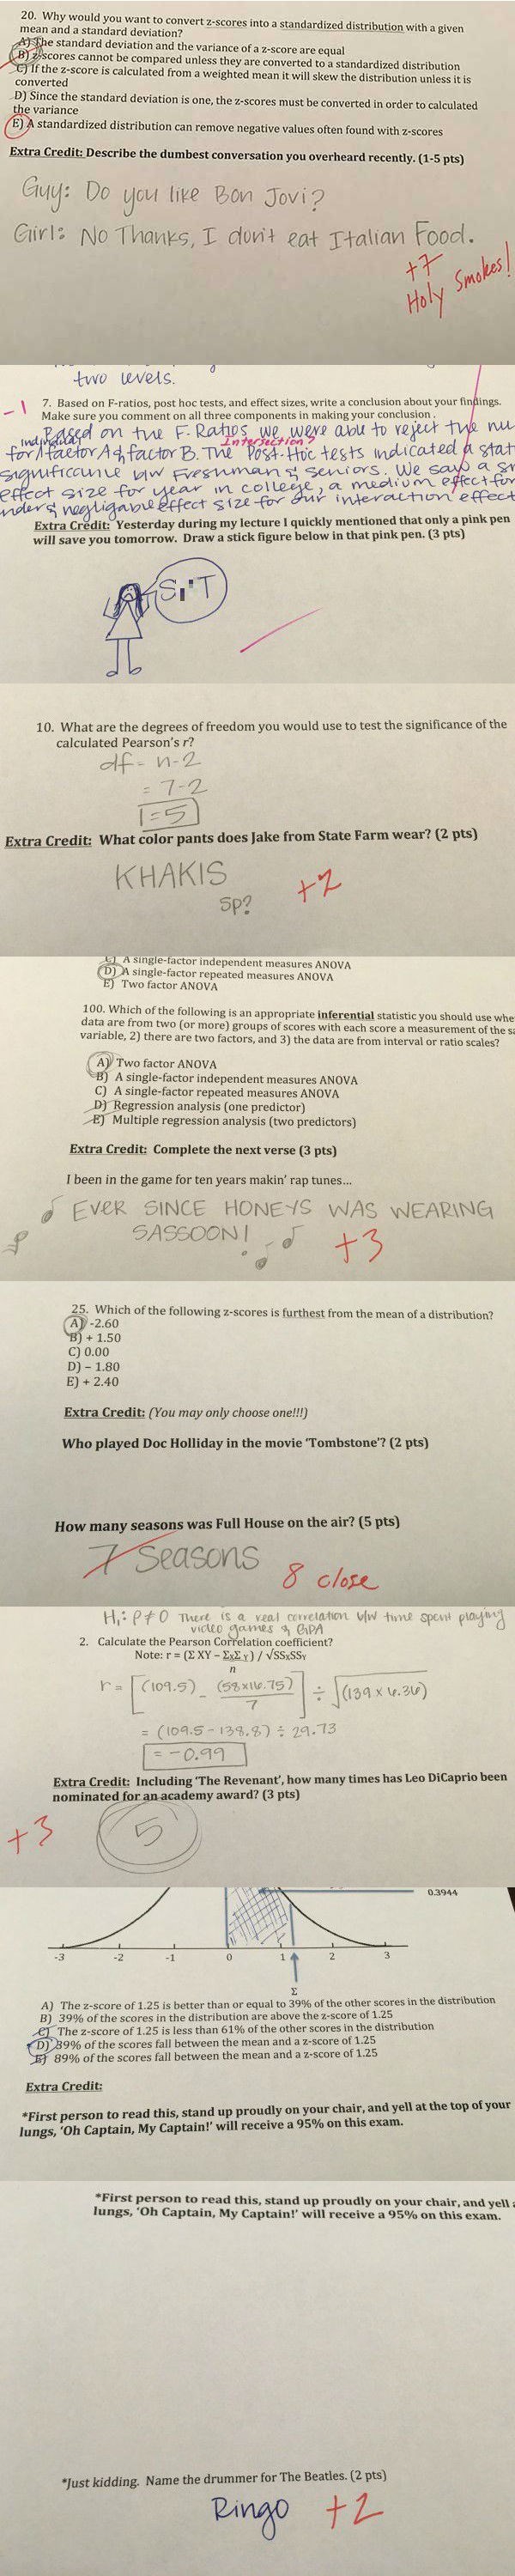 20. Why would you want to convert z-scores into a standardized distribution with a given
mean and a standard deviation?
A) The standard deviation and the variance of a z-score are equal
B) z-scores cannot be compared unless they are converted to a standardized distribution
C) If the z-score is calculated from a weighted mean it will skew the distribution unless it is
converted
D) Since the standard deviation is one, the z-scores must be converted in order to calculated
the variance
E) A standardized distribution can remove negative values often found with z-scores
Extra Credit: Describe the dumbest conversation you overheard recently. (1-5 pts)
Guy: Do you like Bon Jovi?
Girl: No Thanks, I don't eat Italian Food.
+7
Holy Smokes!
two levels.
-1
7. Based on F-ratios, post hoc tests, and effect sizes, write a conclusion about your findings.
Make sure you comment on all three components in making your conclusion.
Based on the F-Ratios we were able to reject the nu
individual Intersection?
for factor A & factor B. The Post-Hoc tests indicated a stat
significance b/w Freshman & Seniors. We saw a sm
effect size for year in college, a medium effect for
nders & negligable effect size for our interaction effect
Extra Credit: Yesterday during my lecture I quickly mentioned that only a pink pen
will save you tomorrow. Draw a stick figure below in that pink pen. (3 pts)
10. What are the degrees of freedom you would use to test the significance of the
calculated Pearson's r?
df = n-2
= 7-2
= 5
Extra Credit: What color pants does Jake from State Farm wear? (2 pts)
KHAKIS
sp?
+2
C) A single-factor independent measures ANOVA
D) A single-factor repeated measures ANOVA
E) Two factor ANOVA
100. Which of the following is an appropriate inferential statistic you should use whe
data are from two (or more) groups of scores with each score a measurement of the sa
variable, 2) there are two factors, and 3) the data are from interval or ratio scales?
A) Two factor ANOVA
B) A single-factor independent measures ANOVA
C) A single-factor repeated measures ANOVA
D) Regression analysis (one predictor)
E) Multiple regression analysis (two predictors)
Extra Credit: Complete the next verse (3 pts)
I been in the game for ten years makin' rap tunes...
EVER SINCE HONEYS WAS WEARING
SASSOON!
+3
25. Which of the following z-scores is furthest from the mean of a distribution?
A) -2.60
B) + 1.50
C) 0.00
D) – 1.80
E) + 2.40
Extra Credit: (You may only choose one!!!)
Who played Doc Holliday in the movie 'Tombstone'? (2 pts)
How many seasons was Full House on the air? (5 pts)
7 seasons
8 close
H₁: ρ ≠ 0 There is a real correlation b/w time spent playing
video games & GPA
2. Calculate the Pearson Correlation coefficient?
Note: r = (Σ XY – ΣxΣY) / √SSxSSY
n
r = [(109.5) - (58×16.75) / 7] ÷ √(139 × 6.36)
= (109.5 - 138.8) ÷ 29.73
= -0.99
Extra Credit: Including 'The Revenant', how many times has Leo DiCaprio been
nominated for an academy award? (3 pts)
+3
5
0.3944
-3 -2 -1 0 1 2 3
Σ
A) The z-score of 1.25 is better than or equal to 39% of the other scores in the distribution
B) 39% of the scores in the distribution are above the z-score of 1.25
C) The z-score of 1.25 is less than 61% of the other scores in the distribution
D) 39% of the scores fall between the mean and a z-score of 1.25
E) 89% of the scores fall between the mean and a z-score of 1.25
Extra Credit:
*First person to read this, stand up proudly on your chair, and yell at the top of your
lungs, 'Oh Captain, My Captain!' will receive a 95% on this exam.
*First person to read this, stand up proudly on your chair, and yell a
lungs, 'Oh Captain, My Captain!' will receive a 95% on this exam.
*Just kidding. Name the drummer for The Beatles. (2 pts)
Ringo +2